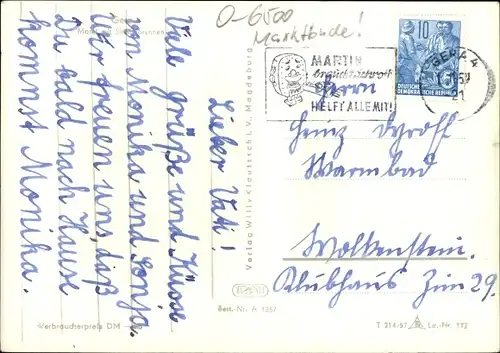 O-6500
Marktbude!
Gera
Markt mit Simsonbrunnen
Lieber Vati!
Viele grüße und Küsse
von Monika und Sonja.
Wir freuen uns, daß
Du bald nach Hause
kommst Monika.
Verlag Willy Klautzsch i. V. Magdeburg
MARTIN
braucht Schrott
HELFT ALLE MIT!
GERA 4
21
10
DEUTSCHE
DEMOKRATISCHE REPUBLIK
Herrn
Heinz Dyroff
Warmbad
Wolkenstein.
Klubhaus Zim 29.
Best.-Nr. A 1357
Verbraucherpreis DM
T 214/57
Lz.-Nr. 112